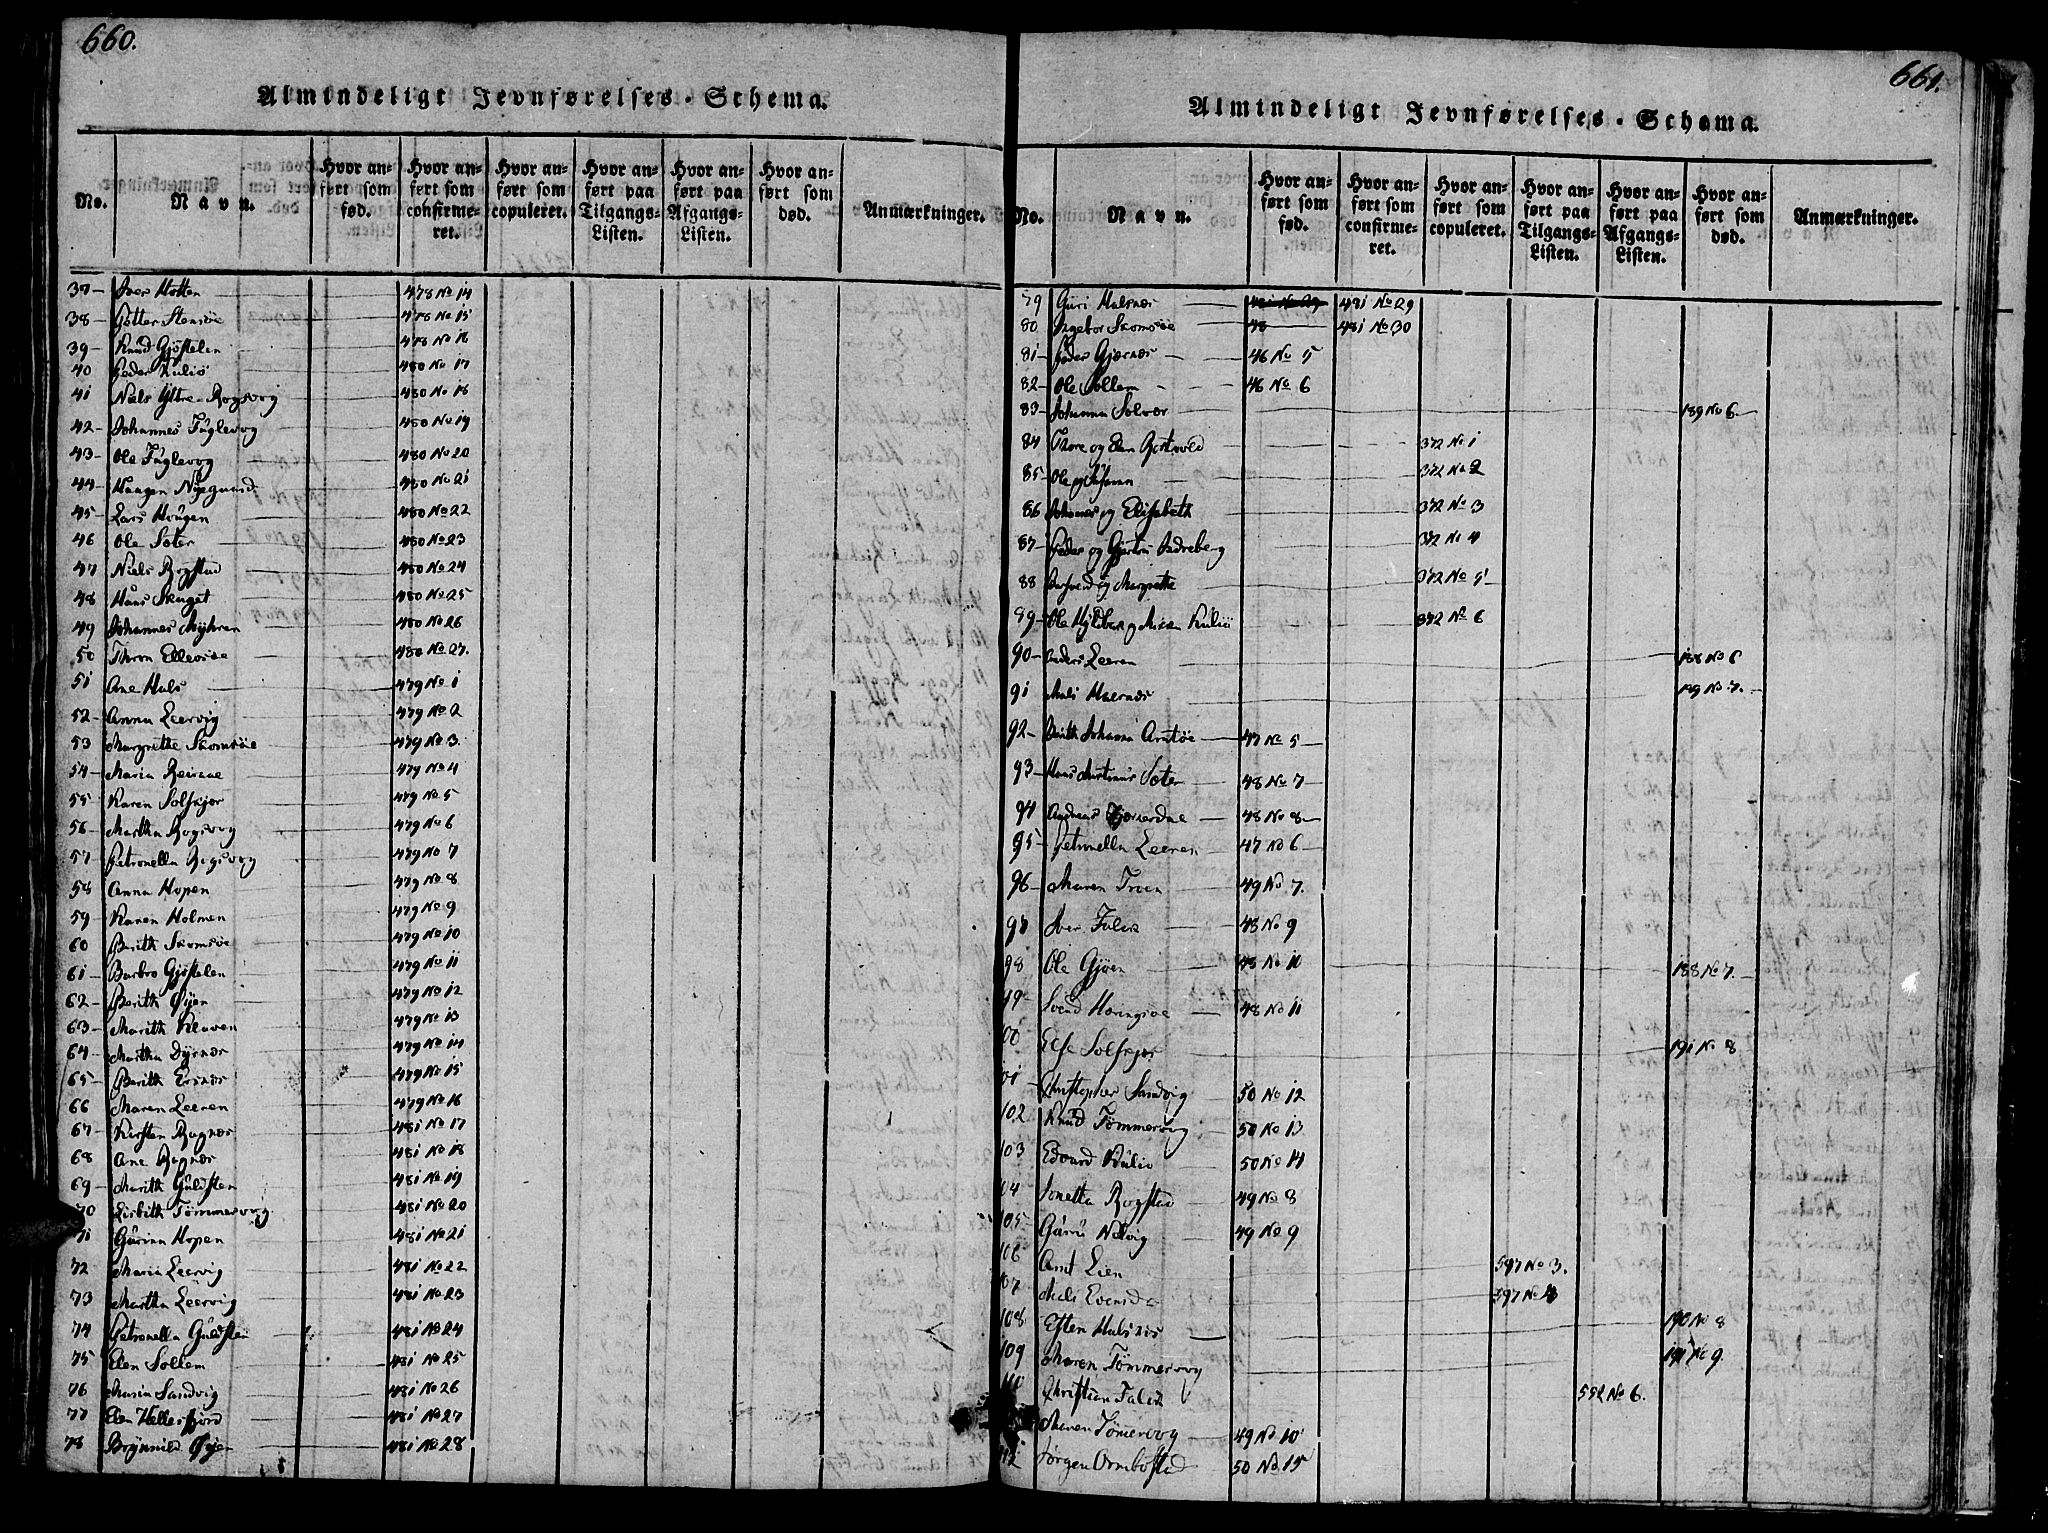 660.
Almindeligt Jevnførelses-Schema.
No. Navn. Hvor anført som fød. Hvor anført som confirmeret. Hvor anført som copuleret. Hvor anført paa Tilgangs-Listen. Hvor anført paa Afgangs-Listen. Hvor anført som død. Anmærkninger.
37 Iver Hotten 478 No 14
38 Petter Stensøe 478 No 15
39 Knud Gjøstelen 478 No 16
40 Peder Kuliø 480 No 17
41 Niels Yttre-Rogsvog 480 No 18
42 Johannes Fuglevog 480 No 19
43 Ole Fuglevog 480 No 20
44 Haagen 480 No 21
45 Lars Hougen 480 No 22
46 Ole Soter 480 No 23
47 Niels Rogstad 480 No 24
48 Hans Skaget 480 No 25
49 Johannes Myhren 480 No 26
50 Thron Ellevsøe 480 No 27.
51 Ane Hals 479 No 1
52 Anna Leervig 479 No 2
53 Margrethe Skomsøe 479 No 3.
54 Maria 479 No 4
55 Karen Solskjør 479 No 5
56 Martha Rogsvog 479 No 6
57 Petronella Rogsvog 479 No 7
58 Anna Hopen 479 No 8
59 Karen Holmen 479 No 9
60 Berith Skomsøe 479 No 10
61 Barbro Gjøstelen 479 No 11
62 Berith Øyen 479 No 12
63 Marith Kleven 479 No 13
64 Martha Dyrnæs 479 No 14
65 Berith Ersnæs 479 No 15
66 Maren Leeren 479 No 16
67 Kirsten Rognæs 481 No 17
68 Ane Rognæs 481 No 18
69 Marith Guldsten 481 No 19
70 Lisbith Tømmervog 481 No 20
71 Gurina Hopen 481 No 21
72 Maria Leervig 481 No 22
73 Martha Leervig 481 No 23
74 Petronella Guldsten 481 No 24
75 Elen Sollem 481 No 25
76 Maria Sandvig 481 No 26
77 Elen Hellesfjord 481 No 27
78 Brynnild Øyen 481 No 28
661.
Almindeligt Jevnførelses-Schema.
No. Navn. Hvor anført som fød. Hvor anført som confirmeret. Hvor anført som copuleret. Hvor anført paa Tilgangs-Listen. Hvor anført paa Afgangs-Listen. Hvor anført som død. Anmærkninger.
79 Guri Halsnæs 481 No 29 481 No 29
80 Ingebor Skomsøe 48 481 No 30
81 Peder Gjernæs 46 No 5
82 Ole Sollem 46 No 6
83 Johanna Solvær 189 No 6.
84 Thore og Elen 372 No 1
85 Ole og 372 No 2
86 Johannes og Elisabeth 372 No 3
87 Peder og Indreberg 372 No 4
88 og Margrethe 372 No 5
89 Ole og Kuliø 372 No 6
90 Anders Leeren 188 No 6
91 Mali Halsnæs 189 No 7.
92 Berith Johanna Arntøe 47 No 5
93 Hans Martinus Soter 48 No 7
94 Andreas 48 No 8
95 Petronella Leeren 47 No 6
96 Maren Troen 49 No 7.
97 Iver 48 No 9
98 Ole Gjøen 48 No 10 188 No 7.
99 Svend Haringsøe 48 No 11
100 Else Solskjør 191 No 8
101 Christopher Sandvig 50 No 12
102 Knud Tømmervog 50 No 13
103 Edvard Kuliø 50 No 14
104 Jonetta Rogstad 49 No 8
105 Guru Nelvig 49 No 9
106 Arnt Lien 597 No 3.
107 Mali 597 No 4
108 Esten Halsnæs 190 No 8
109 Maren Tømmervog 191 No 9.
110 Christian 552 No 6.
Maren Tømervog 49 No 10
Jørgen Ormbostad 50 No 15